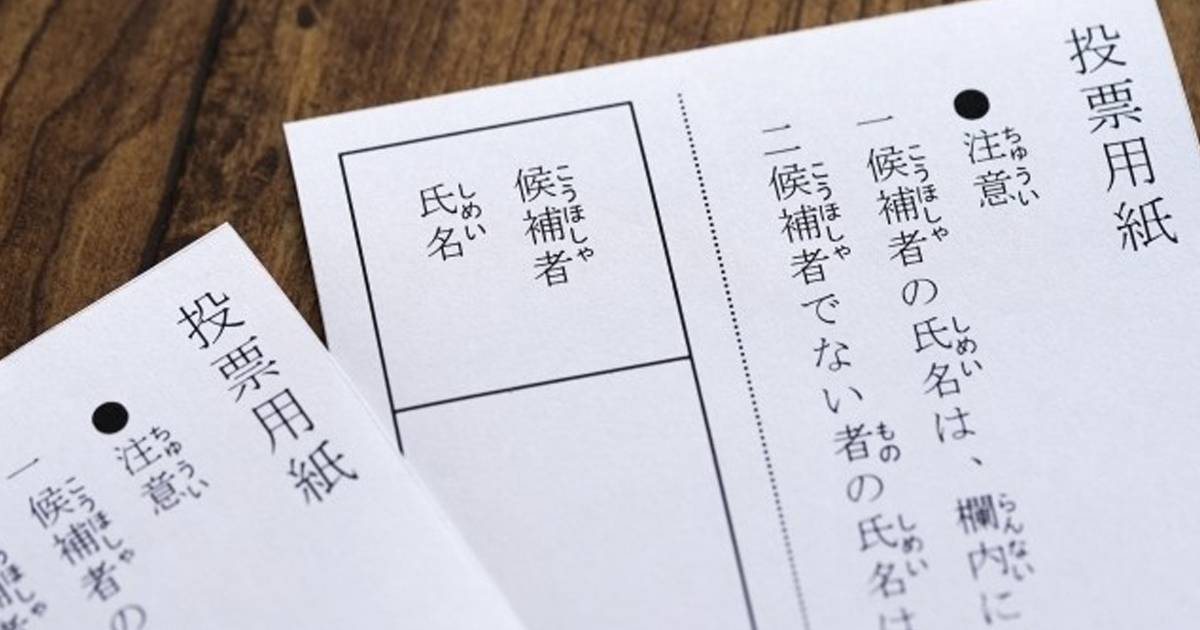 投票用紙
●注意
一 候補者の氏名は、欄内に
二 候補者でない者の氏名は
候補者
氏名
投票用紙
●注意
一 候補者の